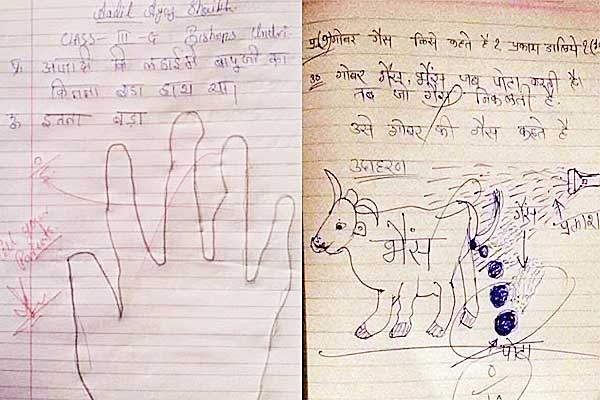 Aadil Ayaz Shaikh
CLASS- III - G Bishops Undri
प्र. आजादी कि लडाई में बापूजी का
कितना बडा हाथ था।
उ. इतना बडा
0
Call your
Parents
प्र(१) गोबर गैस किसे कहते है? प्रकाश डालिये?
उ० गोबर गैस, भैंस जब पोटा करती है।
तब जो गैस निकलती है.
उसे गोबर की गैस कहते है
उदाहरण
भैंस
गैस
प्रकाश
पोटा
0
10